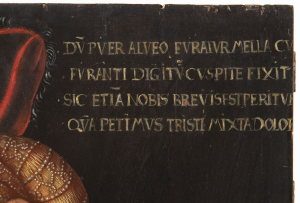 DV̄ PVER ALVEO FVRATVR MELLA CV
FVRANTI DIGITV̄ CVSPITE FIXIT
SIC ETIĀ NOBIS BREVIS EST PERITVR
QVĀ PETIMVS TRISTI MIXTA DOLOR